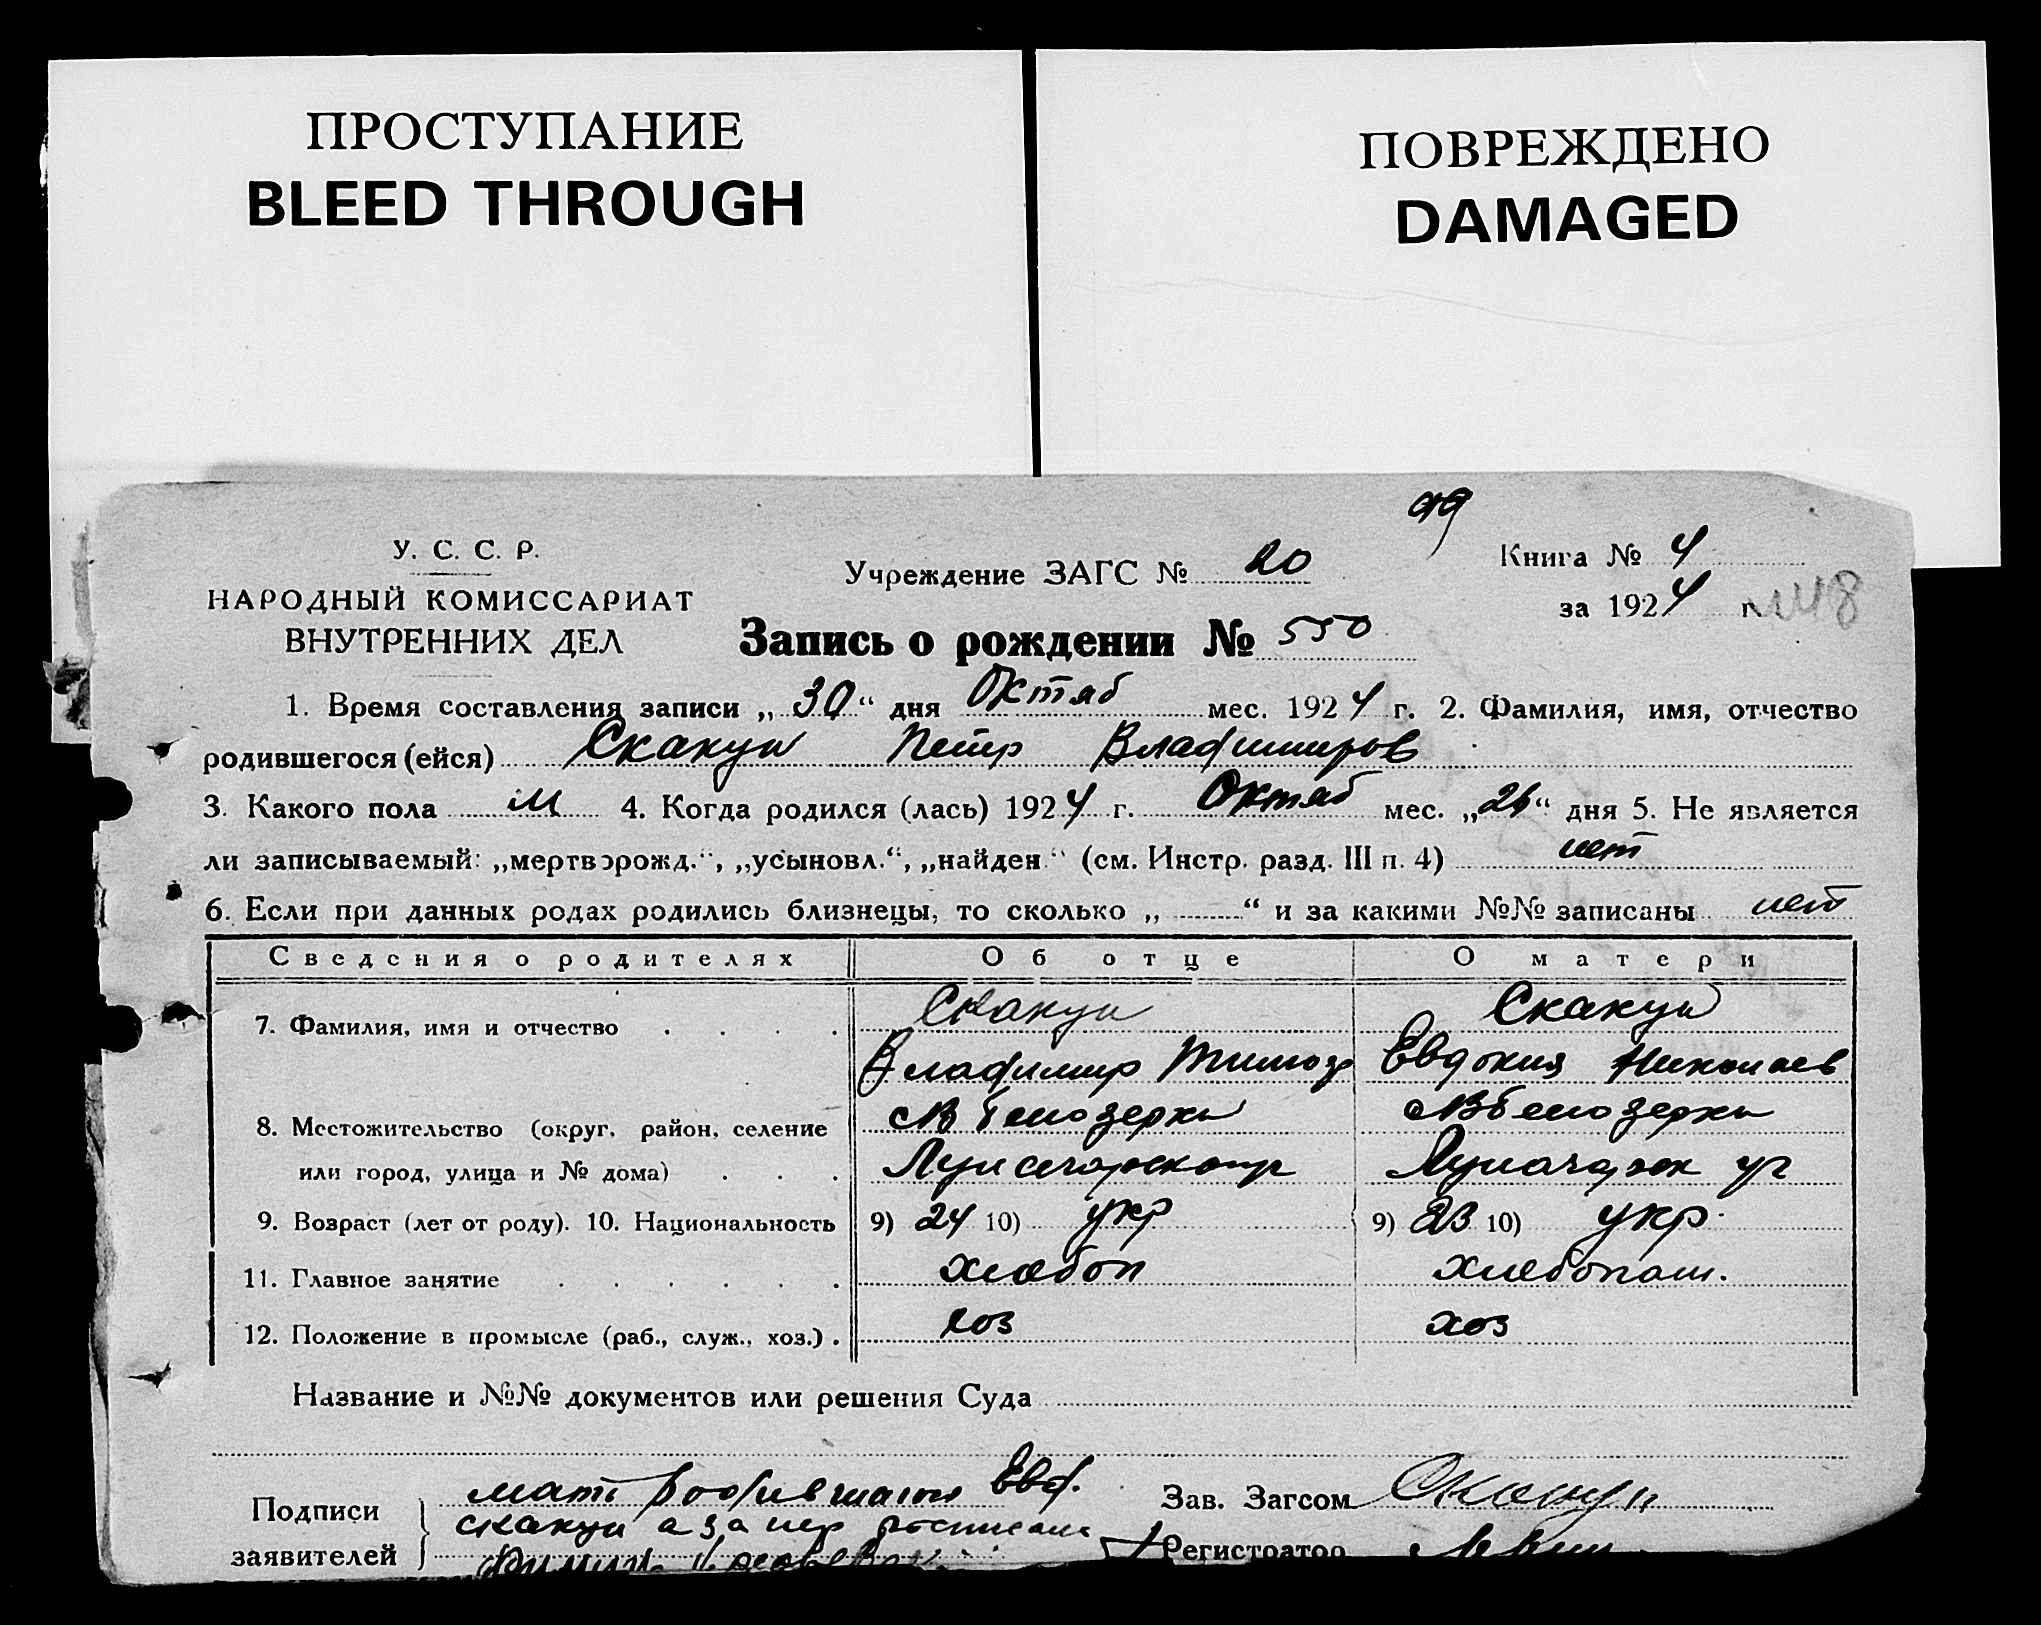 ПРОСТУПАНИЕ
BLEED THROUGH
ПОВРЕЖДЕНО
DAMAGED
99
У. С. С. Р.
НАРОДНЫЙ КОМИССАРИАТ
ВНУТРЕННИХ ДЕЛ
Учреждение ЗАГС № 20
Книга № 4
за 1924 г.
Запись о рождении № 550
1. Время составления записи „30“ дня Октяб мес. 1924 г. 2. Фамилия, имя, отчество
родившегося (ейся) Скакун Петр Владимиров
3. Какого пола М 4. Когда родился (лась) 1924 г. Октяб мес. „26“ дня 5. Не является
ли записываемый: „мертворожд.“, „усыновл.“, „найден.“ (см. Инстр. разд. III п. 4) нет
6. Если при данных родах родились близнецы, то сколько „ “ и за какими №№ записаны нет
Сведения о родителях Об отце О матери
7. Фамилия, имя и отчество Скакун Скакун
Владимир Тимоф Евдокия Николаев
8. Местожительство (округ, район, селение Белозерки Белозерки
или город, улица и № дома)
9. Возраст (лет от роду). 10. Национальность 9) 24 10) укр 9) 23 10) укр.
11. Главное занятие хлебоп хлебопаш.
12. Положение в промысле (раб., служ., хоз.) хоз хоз
Название и №№ документов или решения Суда
Подписи
заявителей
мать родившагося Евд.
Скакун а за нер росписался
Зав. Загсом Скакун
Регистратор